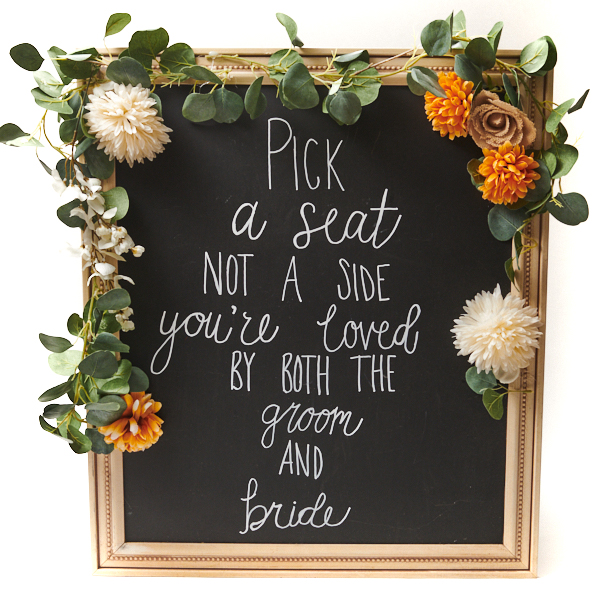 PICK
a seat
NOT A SIDE
you're loved
BY BOTH THE
groom
AND
bride